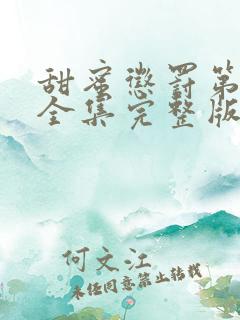 甜蜜惩罚第
全集完整版
何文江
未经同意禁止转载